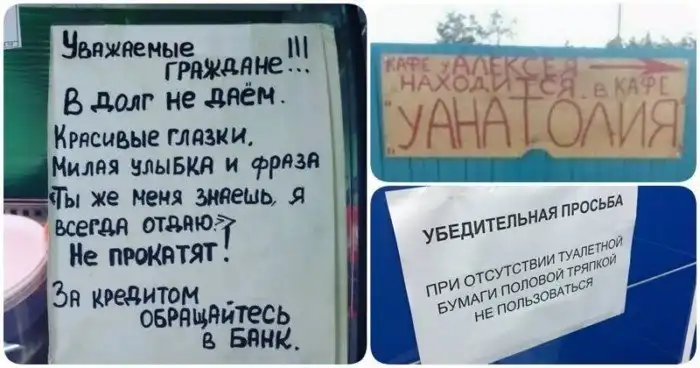 Уважаемые
граждане!!!
В долг не даём.
Красивые глазки,
милая улыбка и фраза
«Ты же меня знаешь, я
всегда отдаю»
Не прокатят!
За кредитом
обращайтесь
в банк.
КАФЕ у АЛЕКСЕЯ
НАХОДИТСЯ в КАФЕ
"УАНАТОЛИЯ"
УБЕДИТЕЛЬНАЯ ПРОСЬБА
ПРИ ОТСУТСТВИИ ТУАЛЕТНОЙ
БУМАГИ ПОЛОВОЙ ТРЯПКОЙ
НЕ ПОЛЬЗОВАТЬСЯ